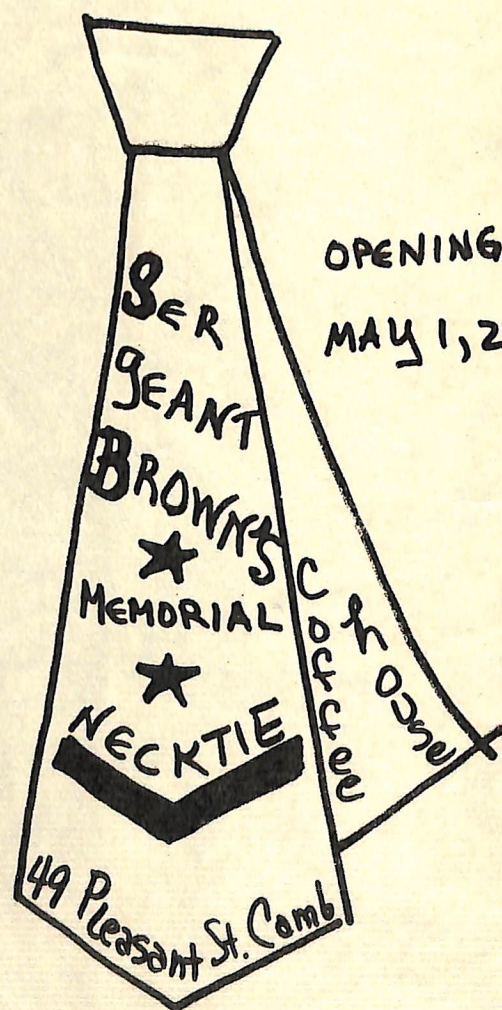 SERGEANT
BROWN'S
MEMORIAL
NECKTIE
Coffee
house
49 Pleasant St. Camb.
OPENING
MAY 1, 2